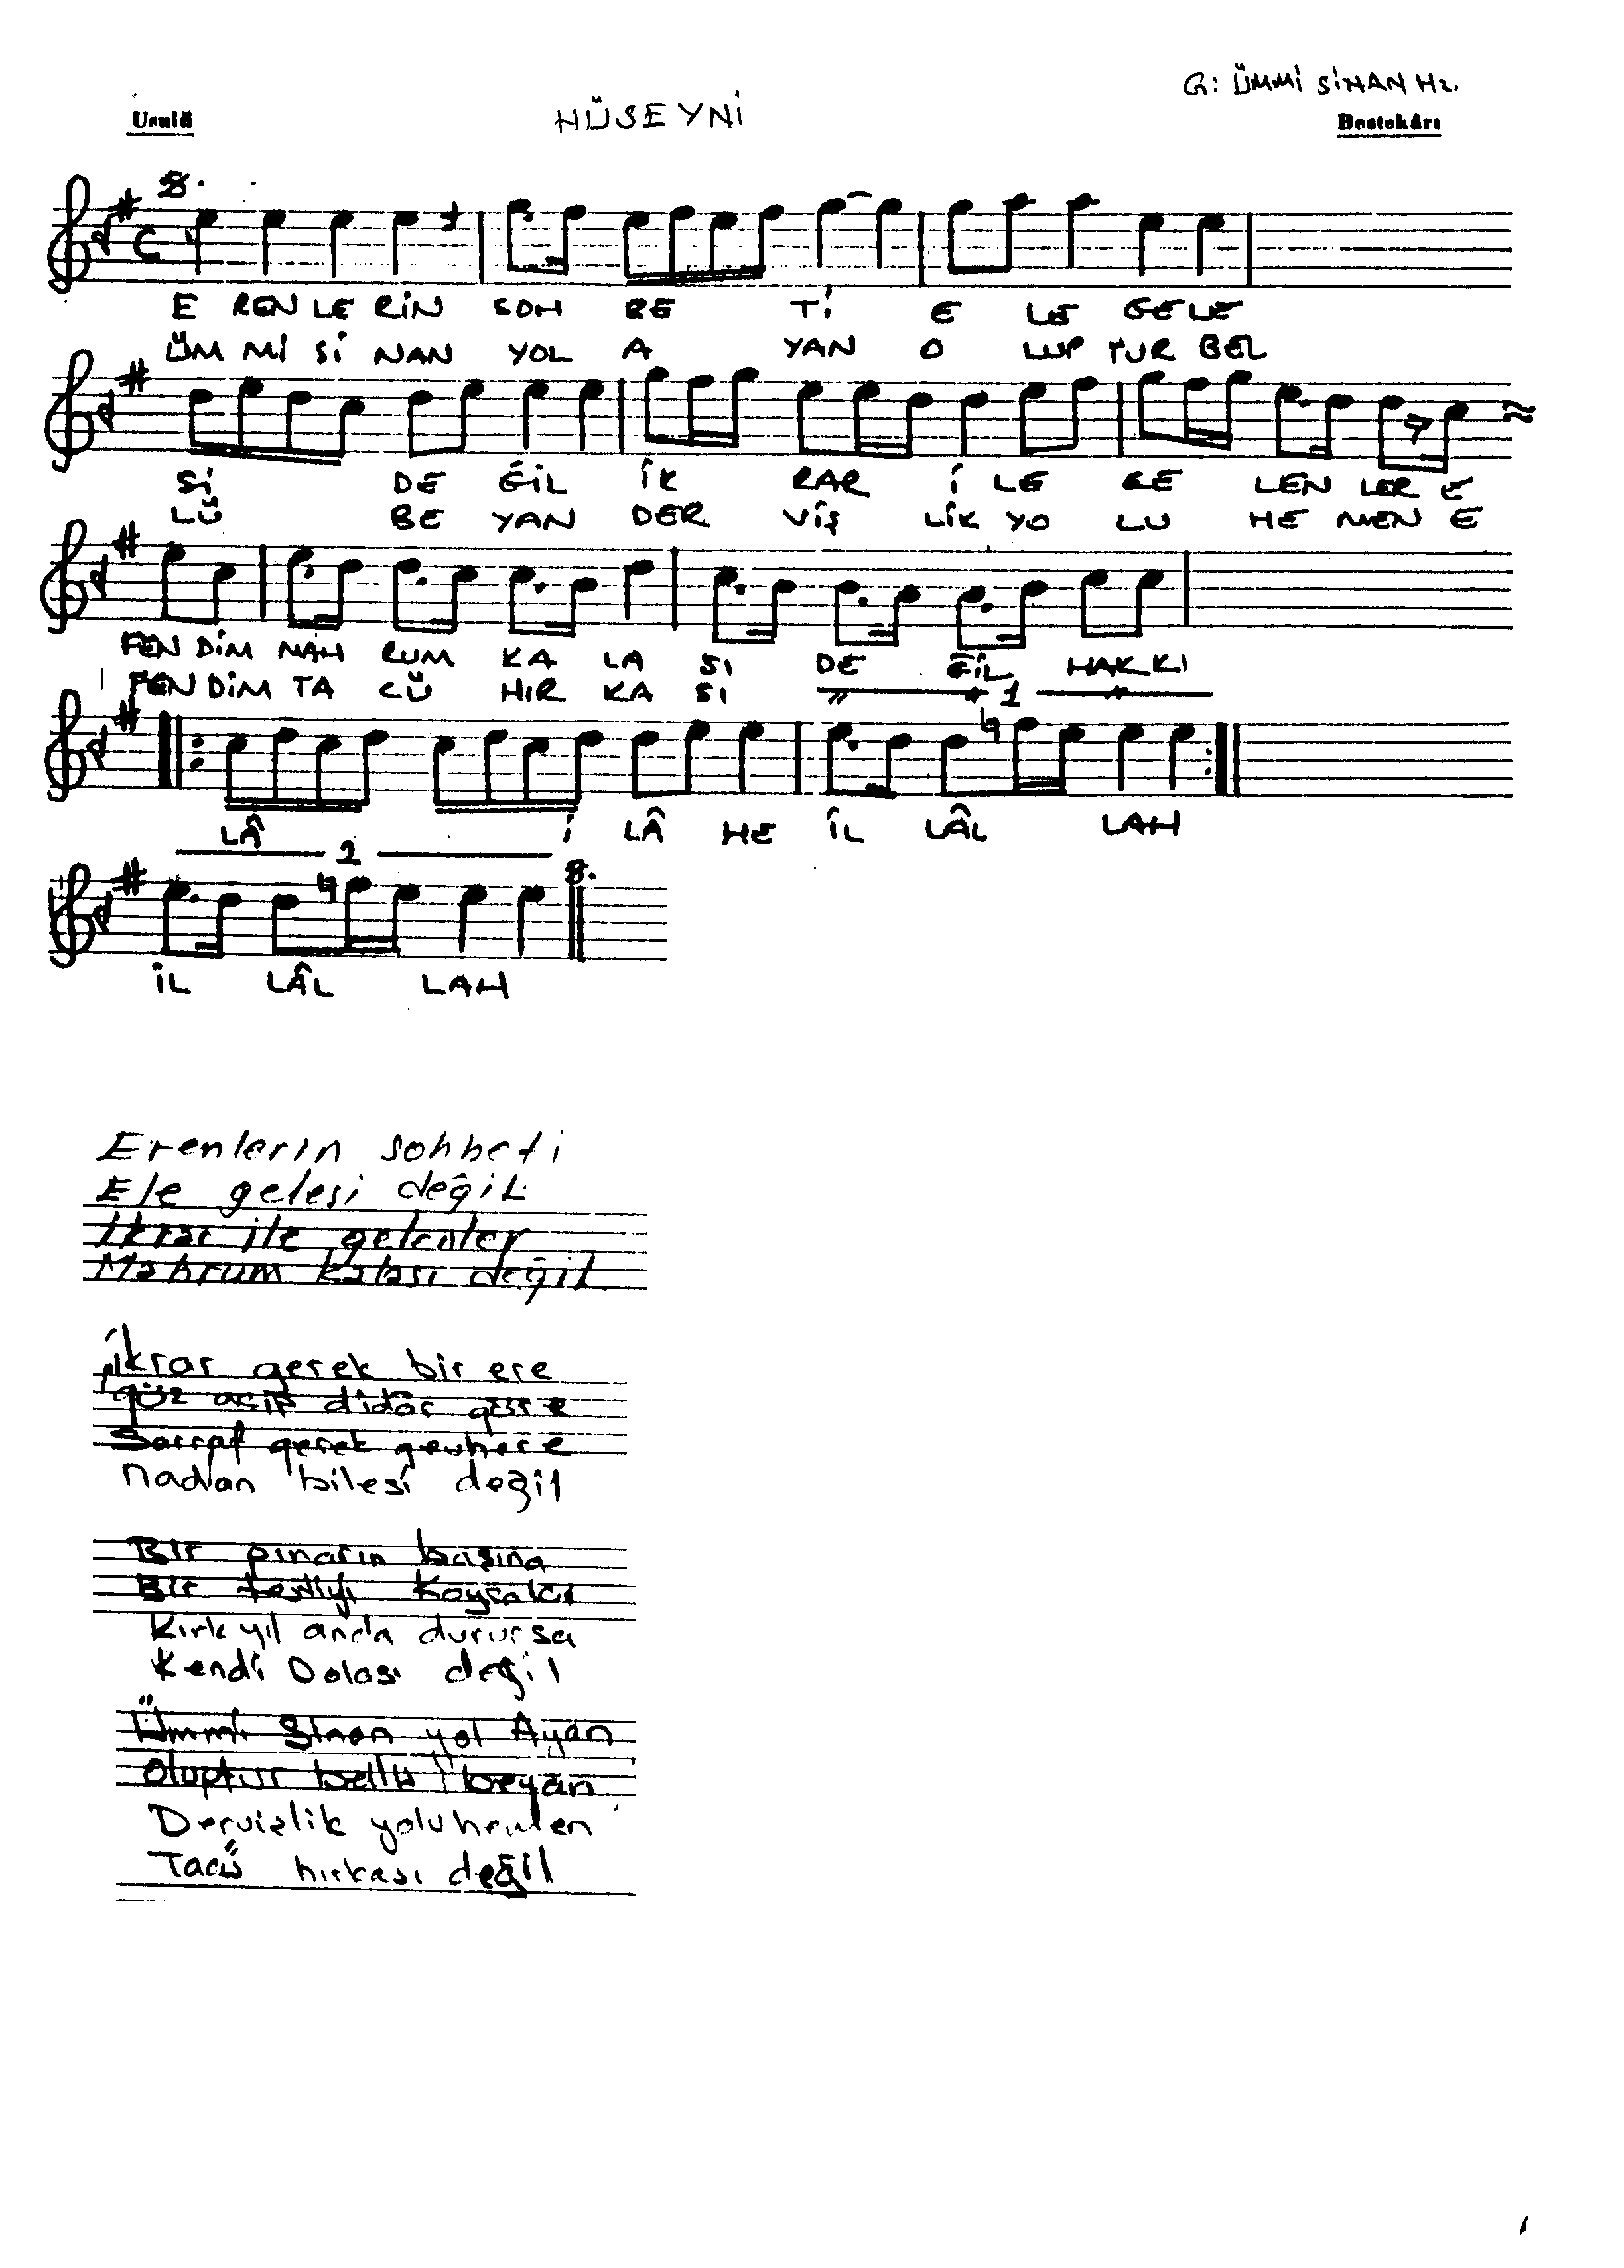 G: ÜMMİ SİNAN Hz.
Usulü
HÜSEYNİ
Bestekârı
E REN LE RİN SOH BE Tİ E LE GE LE
ÜM Mİ Sİ NAN YOL A YAN O LUP TUR BEL
Sİ DE ĞİL İK RAR İ LE GE LEN LER E
LÜ BE YAN DER VİŞ LİK YO LU HE MEN E
FEN DİM MAH RUM KA LA SI DE ĞİL HAK KI
FEN DİM TA CÜ HIR KA SI
1
LÂ İ LÂ HE İL LÂL LAH
2
İL LÂL LAH
Erenlerin sohbeti
Ele gelesi değil
İkrar ile gelenler
Mahrum kalası değil
İkrar gerek bir ere
göz açıp didâr göre
Sarraf gerek gevhere
nadan bilesi değil
Bir pınarın başına
Bir testiyi koysalar
Kırk yıl anda durursa
Kendi Dolası değil
Ümmi Sinan yol Ayan
oluptur bellü beyan
Dervişlik yolu hemen
Tacü hırkası değil